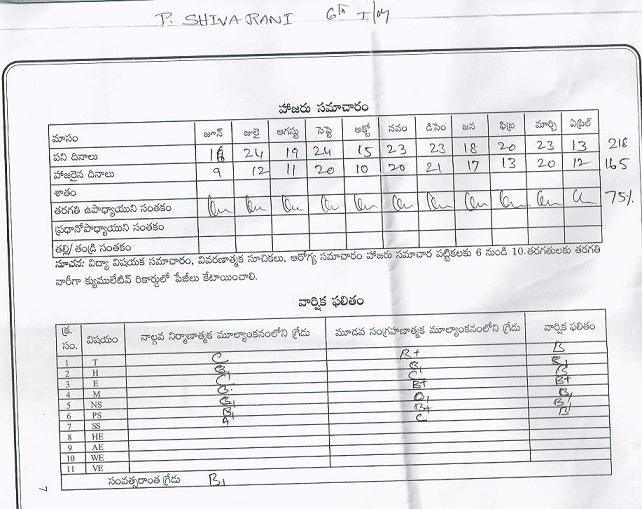 P. SHIVA RANI 6th
హాజరు సమాచారం
మాసం జూన్ జులై ఆగస్టు సెప్టె అక్టో నవం డిసెం జన ఫిబ్ర మార్చి ఏప్రిల్
పని దినాలు 24 19 24 15 23 23 18 20 23 13 218
హాజరైన దినాలు 9 12 11 20 10 20 21 17 13 20 12 165
శాతం
తరగతి ఉపాధ్యాయుని సంతకం 75%
ప్రధానోపాధ్యాయుని సంతకం
తల్లి/ తండ్రి సంతకం
సూచన: విద్యా విషయక సమాచారం, వివరణాత్మక సూచికలు, ఆరోగ్య సమాచారం హాజరు సమాచార పట్టికలకు 6 నుండి 10.తరగతులకు తరగతి
వారీగా క్యుములేటివ్ రికార్డులో పేజీలు కేటాయించాలి.
వార్షిక ఫలితం
క్ర. సం. విషయం నాల్గవ నిర్మాణాత్మక మూల్యాంకనంలోని గ్రేడు మూడవ సంగ్రహణాత్మక మూల్యాంకనంలోని గ్రేడు వార్షిక ఫలితం
1 T C B+ B
2 H
3 E
4 M B+ B+
5 NS
6 PS B1 B+
7 SS A C B
8 HE
9 AE
10 WE
11 VE
సంవత్సరాంత గ్రేడు B1